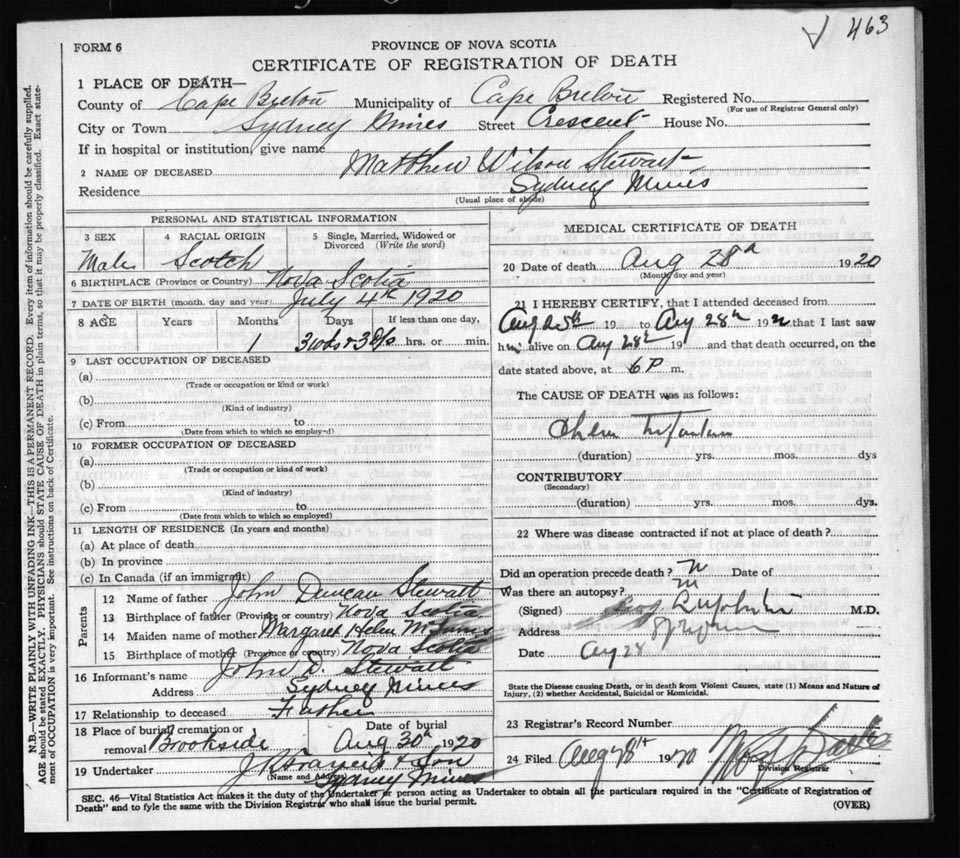 463
FORM 6
PROVINCE OF NOVA SCOTIA
CERTIFICATE OF REGISTRATION OF DEATH
1 PLACE OF DEATH—
County of Cape Breton Municipality of Cape Breton Registered No.
(For use of Registrar General only)
City or Town Sydney Mines Street Crescent House No.
If in hospital or institution, give name
2 NAME OF DECEASED Matthew Wilson Stewart
Residence Sydney Mines
(Usual place of abode)
PERSONAL AND STATISTICAL INFORMATION
3 SEX 4 RACIAL ORIGIN 5 Single, Married, Widowed or Divorced (Write the word)
Male Scotch
6 BIRTHPLACE (Province or Country) Nova Scotia
7 DATE OF BIRTH (month, day and year) July 4th 1920
8 AGE Years Months Days If less than one day,
1 3 wks + 3 ds hrs. or min.
9 LAST OCCUPATION OF DECEASED
(a)
(Trade or occupation or kind or work)
(b)
(Kind of industry)
(c) From to
(Date from which to which so employed)
10 FORMER OCCUPATION OF DECEASED
(a)
(Trade or occupation or kind of work)
(b)
(Kind of industry)
(c) From to
(Date from which to which so employed)
11 LENGTH OF RESIDENCE (In years and months)
(a) At place of death
(b) In province
(c) In Canada (if an immigrant)
Parents
12 Name of father John Duncan Stewart
13 Birthplace of father (Province or country) Nova Scotia
14 Maiden name of mother Margaret Helen
15 Birthplace of mother (Province or country) Nova Scotia
16 Informant's name John D. Stewart
Address Sydney Mines
17 Relationship to deceased Father
18 Place of burial, cremation or removal Brookside Date of burial Aug 30th 1920
19 Undertaker & Son
(Name and Address) Sydney Mines
MEDICAL CERTIFICATE OF DEATH
20 Date of death Aug 28th 1920
(Month, day and year)
21 I HEREBY CERTIFY, that I attended deceased from
Aug 25th 19 to Aug 28th 19 that I last saw
him alive on Aug 28th 19 and that death occurred, on the
date stated above, at 6 P m.
The CAUSE OF DEATH was as follows:
(duration) yrs. mos. dys
CONTRIBUTORY
(Secondary)
(duration) yrs. mos. dys.
22 Where was disease contracted if not at place of death?
Did an operation precede death? Date of
Was there an autopsy?
(Signed) M.D.
Address
Date Aug 28
State the Disease causing Death, or in death from Violent Causes, state (1) Means and Nature of
Injury, (2) whether Accidental, Suicidal or Homicidal.
23 Registrar's Record Number
24 Filed Aug 28th 1920
Division Registrar
SEC. 46—Vital Statistics Act makes it the duty of the Undertaker or person acting as Undertaker to obtain all the particulars required in the "Certificate of Registration of
Death" and to fyle the same with the Division Registrar who shall issue the burial permit.
(OVER)
N.B.—WRITE PLAINLY WITH UNFADING INK—THIS IS A PERMANENT RECORD. Every item of information should be carefully supplied.
AGE should be stated EXACTLY. PHYSICIANS should STATE CAUSE OF DEATH in plain terms, so that it may be properly classified. Exact state-
ment of OCCUPATION is very important. See instructions on back of Certificate.